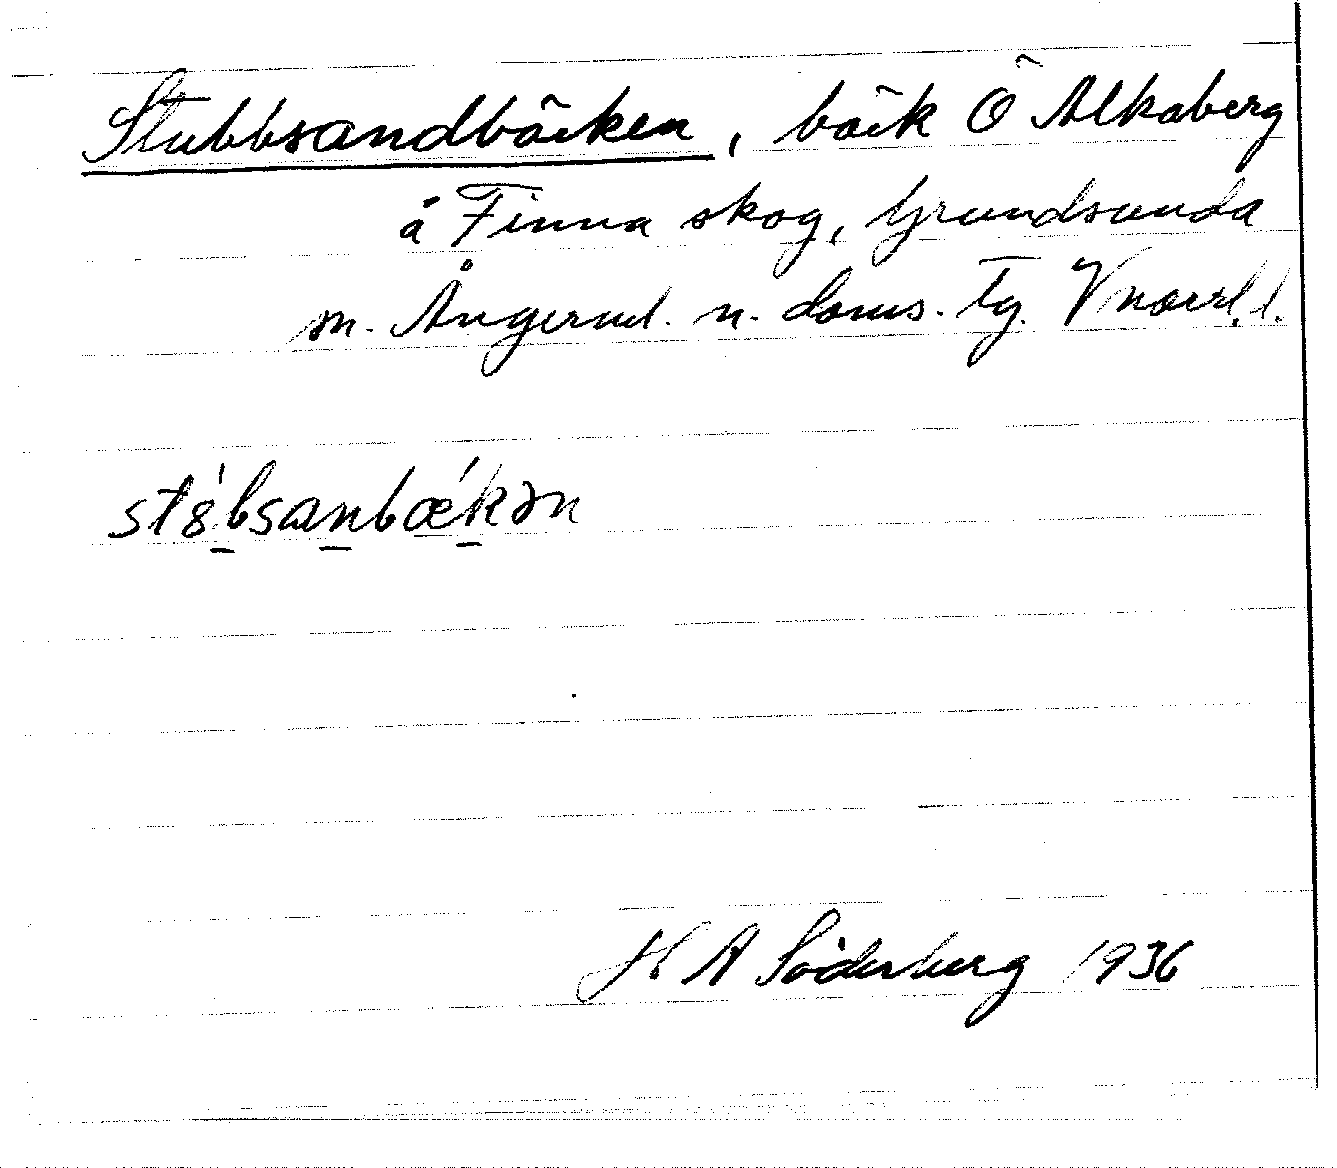 Stubbsandbäcken, bäck Ö Alkaberg
å Finna skog, Grundsunda
m. Ångerml. n. doms. tg. Vnorrl. l.
stɞ́bsanbǽkən
H A Söderberg 1936